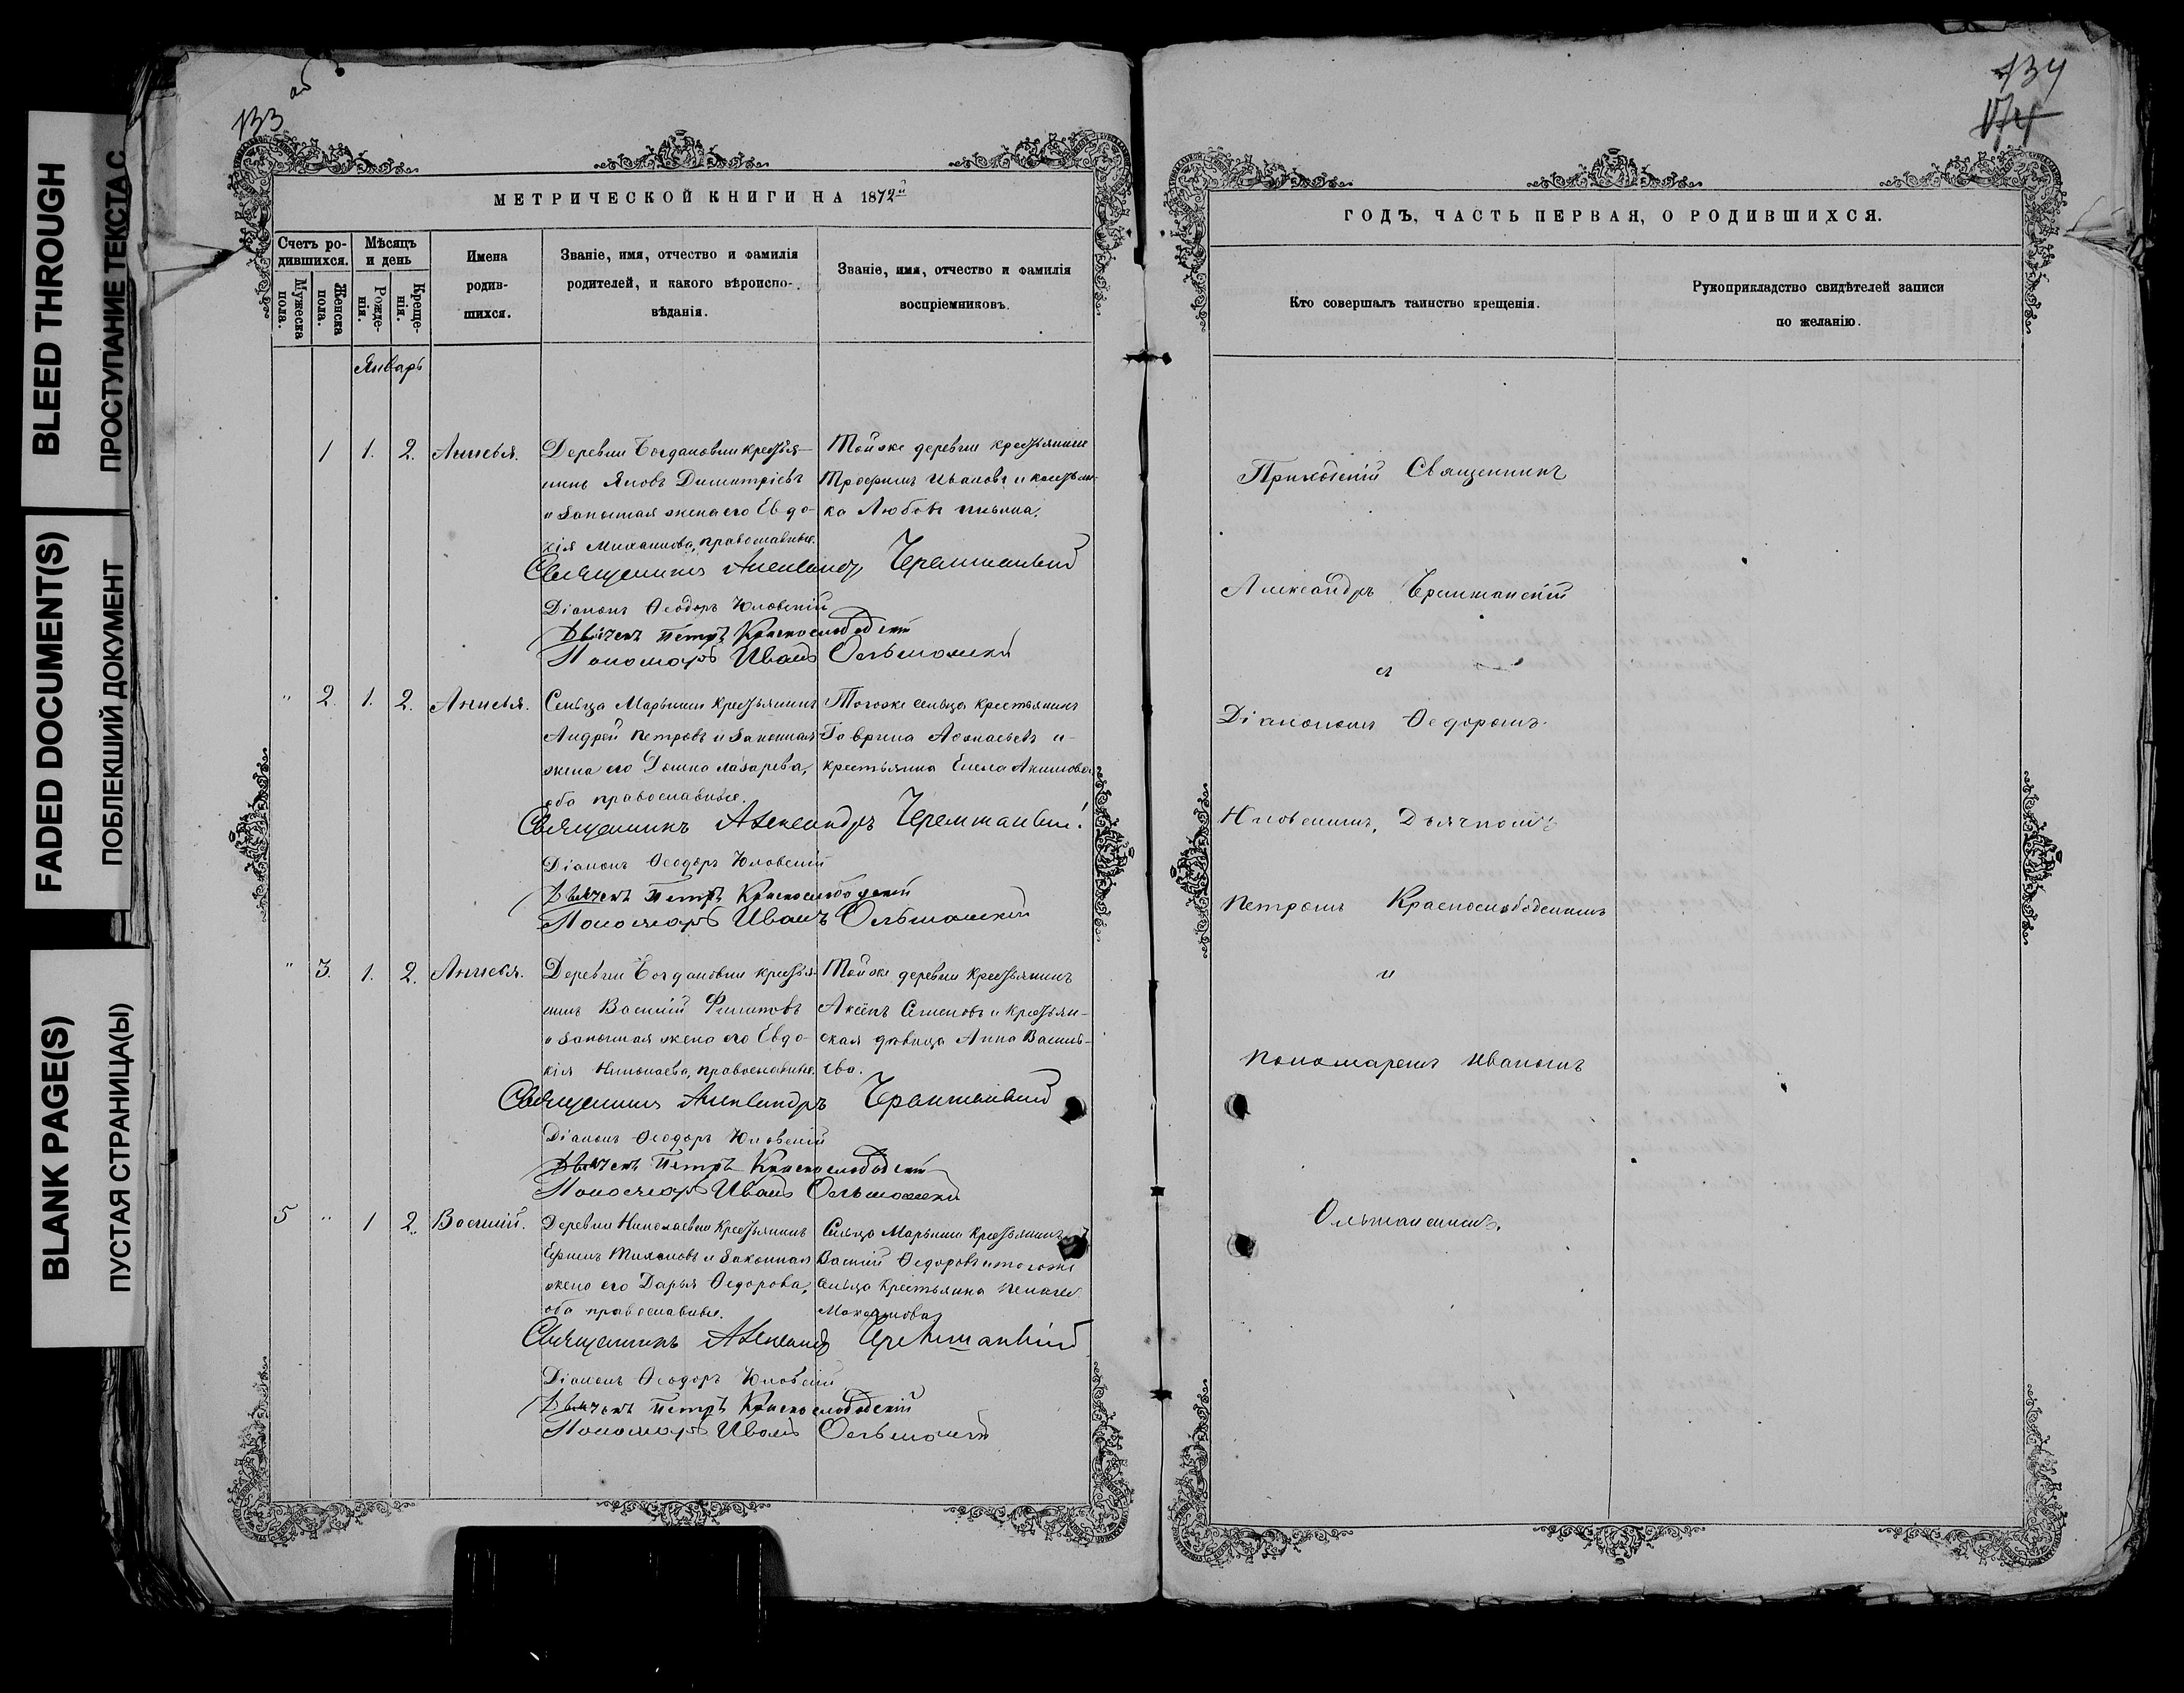 BLEED THROUGH
ПРОСТУПАНИЕ ТЕКСТА С
FADED DOCUMENT(S)
ПОБЛЕКШИЙ ДОКУМЕНТ
BLANK PAGE(S)
ПУСТАЯ СТРАНИЦА(Ы)
133
об
МЕТРИЧЕСКОЙ КНИГИ НА 1872й
Счетъ ро-
дившихся.
Мужеска
пола.
Женска
пола.
Мѣсяцъ
и день
Рожде-
нія.
Креще-
нія.
Имена
родив-
шихся.
Званіе, имя, отчество и фамилія
родителей, и какого вѣроиспо-
вѣданія.
Званіе, имя, отчество и фамилія
воспріемниковъ.
Январь
1 1. 2. Анисья. Деревни Богдановки крестья- Тойже деревни крестьянинъ
нинъ Яковъ Димитріевъ Трофимъ Ивановъ и крестьян-
и законная жена его Евдо- ка Любовь
кія Михаилова, православные.
Священникъ Александръ Черемшанскій
Діаконъ Ѳеодоръ Юловскій
Дьячекъ Петръ Краснослободскій
Пономарь Иванъ Ольшанскій
" 2. 1. 2. Анисья. Сельца Марьина крестьянинъ Тогоже сельца крестьянинъ
Андрей Петровъ и законная Гаврила Аѳанасьевъ и
жена его Домна Лазарева, крестьянка Елена Акимова
оба православные.
Священникъ Александръ Черемшанскій.
Діаконъ Ѳеодоръ Юловскій
Дьячекъ Петръ Краснослободскій
Пономарь Иванъ Ольшанскій
" 3. 1. 2. Анисья. Деревни Богдановки крестья- Тойже деревни крестьянинъ
нинъ Василій Филиповъ Аксёнъ Семеновъ и крестьян-
и законная жена его Евдо- ская дѣвица Анна Василь-
кія Николаева, православные. ева.
Священникъ Александръ Черемшанскій
Діаконъ Ѳеодоръ Юловскій
Дьячекъ Петръ Краснослободскій
Пономарь Иванъ Ольшанскій
5 " 1 2. Василій. Деревни Николаевки крестьянинъ Сельца Марьина крестьянинъ
Ефимъ Тихоновъ и законная Василій Ѳедоровъ и тогоже
жена его Дарья Ѳедорова, сельца крестьянка Пелагея
оба православные. Максимова
Священникъ Александръ Черемшанскій
Діаконъ Ѳеодоръ Юловскій
Дьячекъ Петръ Краснослободскій
Пономарь Иванъ Ольшанскій
134
174
ГОДЪ, ЧАСТЬ ПЕРВАЯ, О РОДИВШИХСЯ.
Кто совершалъ таинство крещенія.
Рукоприкладство свидѣтелей записи
по желанію.
Приходскій Священникъ
Александръ Черемшанскій
съ
Діакономъ Ѳедоромъ
Юловскимъ, Дьячкомъ
Петромъ Краснослободскимъ
и
Пономаремъ Иваномъ
Ольшанскимъ.